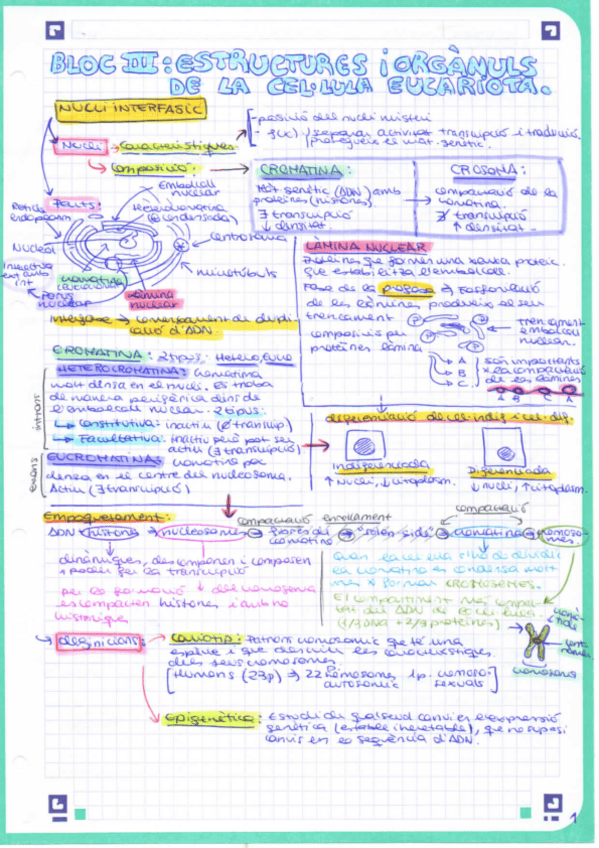 BLOC III: ESTRUCTURES i ORGÀNULS
DE LA CÈL·LULA EUCARIOTA.
NUCLI INTERFÀSIC
- posició del nucli
- f(x) separar activitat transcripció i traducció.
protegeix el mat. genètic.
Nucli → Característiques
→ Composició →
CROMATINA:
Mat. genètic (ADN) amb
proteïnes (histones)
∃ transcripció
↓ densitat.
CROSOMA:
compactació de la
cromatina.
∄ transcripció
↑ densitat.
Parts:
Embolcall
nuclear
Heterocromatina
(⊕ condensada)
centrosoma
Nuclèol
microtúbuls
cromatina
làmina
nuclear
Porus
nuclear
Interfase → començament de dupli-
cació d'ADN.
LÀMINA NUCLEAR
Proteïnes que formen una xarxa proteic.
que estabilitza l'embolcall.
Fase de la profase ⇒ fosforilació
de les làmines produeix el seu
trencament
trencament
embolcall
nuclear.
composició per
proteïnes làmina
A
B
C
són importants
x la compactació
de les làmines
A B C A
CROMATINA: 2 tipus: Hetero, Euc
HETEROCROMATINA: cromatina
molt densa en el nucli. Es troba
de manera perifèrica dins de
l'embolcall nuclear. 2 tipus:
introns
→ Constitutiva: inactiu (∄ transcrip)
→ Facultativa: inactiu però pot ser
actiu (∃ transcripció)
exons
EUCROMATINA: cromatina poc
densa en el centre del nucleosoma.
Actiu (∃ transcripció)
diferenciació cèl. indif i cèl. dif.
Indiferenciada
↑ Nucli, ↓ citoplasm.
Diferenciada
↓ nucli, ↑ citoplasm.
Empaquetament:
compactació
enrollament
compactació
ADN → histona → nucleosomes → fibres de
cromatina → → cromatina → cromoso-
mes
dinàmiques, descomponen i componen
x poder fer la transcripció
per la formació del cromosoma
es compacten histones i amb no
històniques
Quan la cèl·lula s'ha de dividir
la cromatina es condensa molt
més x formar CROMOSOMES.
El compartiment més compac-
tat del ADN de la cèl·lula
(1/3 DNA + 2/3 proteïnes)
cromosoma
definicions:
→ Cariotip: Patrons cromosòmic que té una
espècie i que descriu les característiques
dels seus cromosomes
[Humans (23p) ⇒ 22 cromosomes 1p. cromoso-
autosòmic sexuals]
→ Epigenètica: Estudi de qualsevol canvi en l'expressió
genètica (estable i heretable), que no suposi
canvis en la seqüència d'ADN.
1